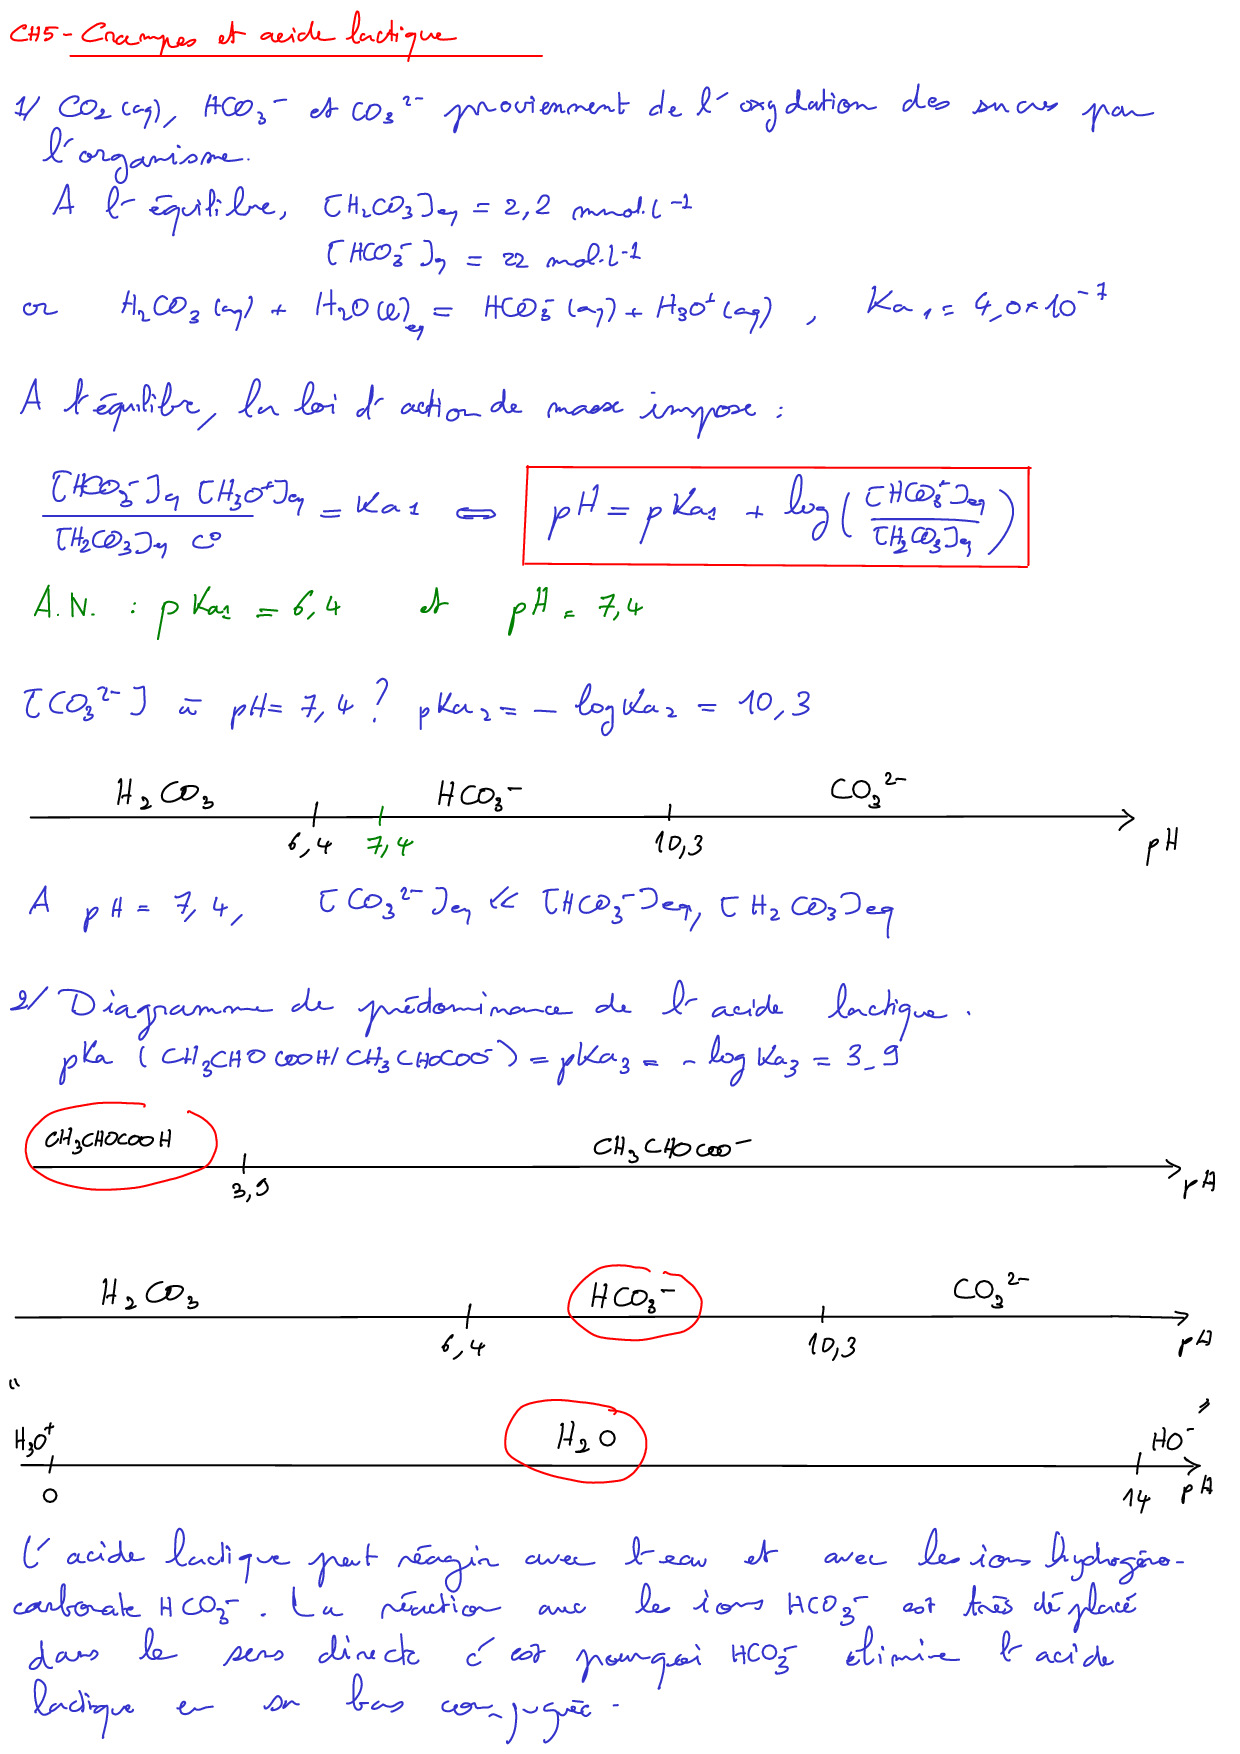 CH5 - Crampes et acide lactique
1/ CO2 (aq), HCO3⁻ et CO3²⁻ proviennent de l'oxydation des sucres par
l'organisme.
A l'équilibre, [H2CO3]eq = 2,2 mmol.L⁻¹
[HCO3⁻]eq = 22 mol.L⁻¹
or H2CO3 (aq) + H2O (l) =eq HCO3⁻ (aq) + H3O⁺ (aq), Ka1 = 4,0 × 10⁻⁷
A l'équilibre, la loi d'action de masse impose :
[HCO3⁻]eq [H3O⁺]eq / [H2CO3]eq C° = Ka1 ⇔ pH = pKa1 + log ( [HCO3⁻]eq / [H2CO3]eq )
A.N. : pKa1 = 6,4 et pH = 7,4
[CO3²⁻] à pH = 7,4 ? pKa2 = - log Ka2 = 10,3
H2CO3 HCO3⁻ CO3²⁻
6,4 7,4 10,3 pH
A pH = 7,4, [CO3²⁻]eq << [HCO3⁻]eq, [H2CO3]eq
2/ Diagramme de prédominance de l'acide lactique.
pKa (CH3CHOCOOH/CH3CHOCOO⁻) = pKa3 = - log Ka3 = 3,9
CH3CHOCOOH CH3CHOCOO⁻
3,9 pH
H2CO3 HCO3⁻ CO3²⁻
6,4 10,3 pH
" H3O⁺ H2O HO⁻ "
0 14 pH
L'acide lactique peut réagir avec l'eau et avec les ions hydrogéno-
carbonate HCO3⁻. La réaction avec les ions HCO3⁻ est très déplacé
dans le sens directe c'est pourquoi HCO3⁻ élimine l'acide
lactique en sa bas conjuguée.